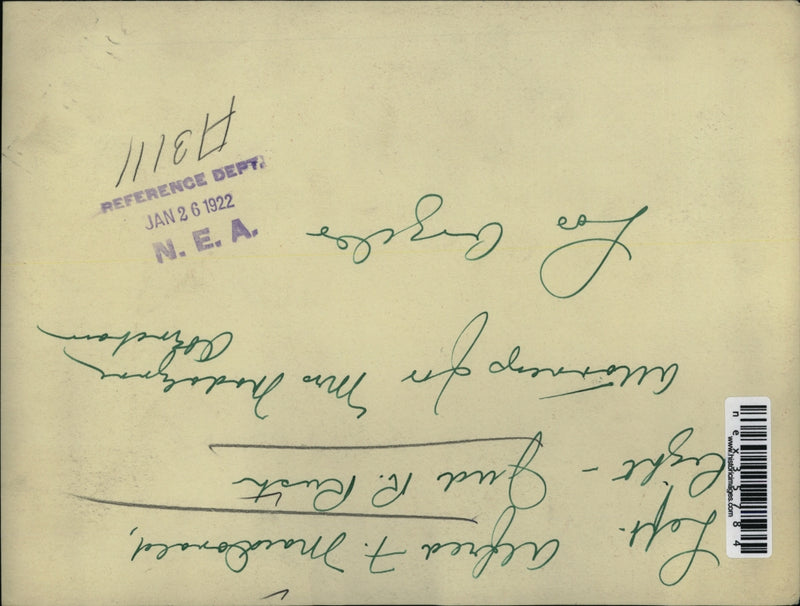 Left. Alfred F. MacDonald,
Right - Jud R. Rush
Attorneys for Mrs Madalynne
Obenchain
Los Angeles
REFERENCE DEPT.
JAN 26 1922
N. E. A.
A3111
www.historicimages.com
nex35784